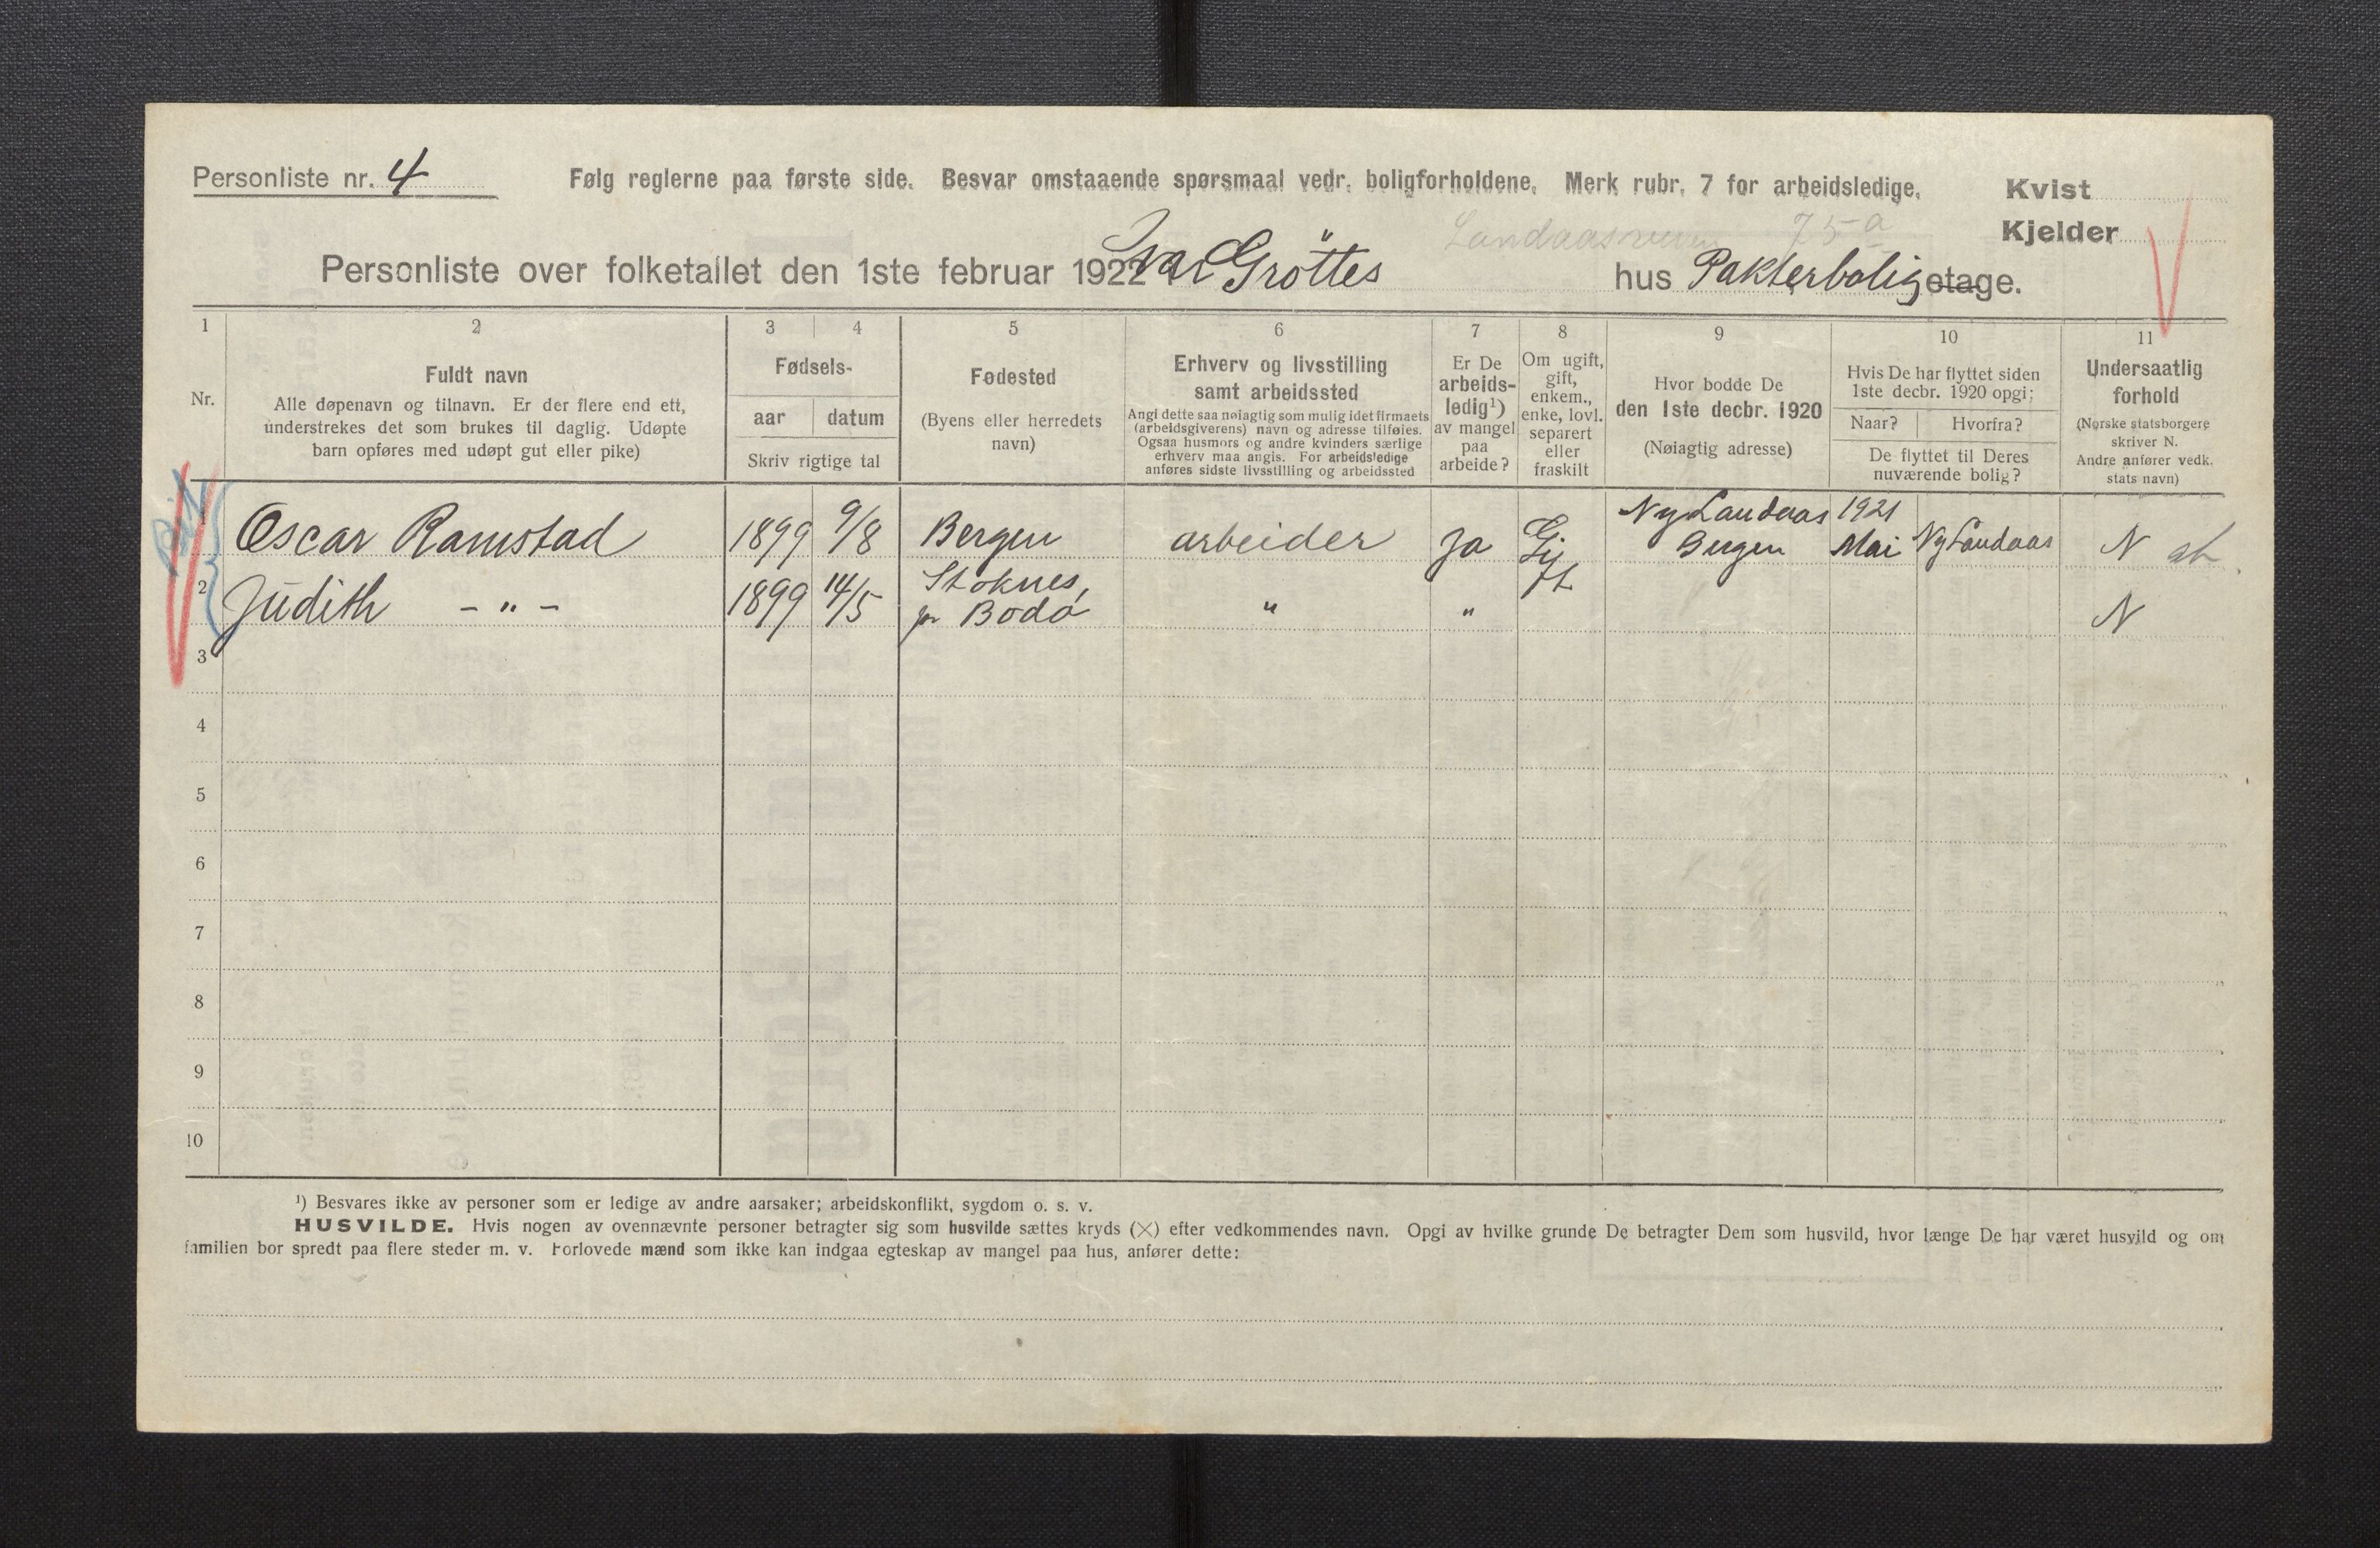 Personliste nr. 4 Følg reglerne paa første side. Besvar omstaaende spørsmaal vedr. boligforholdene. Merk rubr. 7 for arbeidsledige. Kvist
Landaasveien 75 a Kjelder
Personliste over folketallet den 1ste februar 1922 Ivar Grøttes hus Pakterbolig etage.
1 2 3 4 5 6 7 8 9 10 11
Nr.
Fuldt navn
Alle døpenavn og tilnavn. Er der flere end ett,
understrekes det som brukes til daglig. Udøpte
barn opføres med udøpt gut eller pike)
Fødsels-
aar datum
Skriv rigtige tal
Fødested
(Byens eller herredets
navn)
Erhverv og livsstilling
samt arbeidssted
Angi dette saa nøiagtig som mulig idet firmaets
(arbeidsgiverens) navn og adresse tilføies.
Ogsaa husmors og andre kvinders særlige
erhverv maa angis. For arbeidsledige
anføres sidste livsstilling og arbeidssted
Er De
arbeids-
ledig¹)
av mangel
paa
arbeide?
Om ugift,
gift,
enkem.,
enke, lovl.
separert
eller
fraskilt
Hvor bodde De
den 1ste decbr. 1920
(Nøiagtig adresse)
Hvis De har flyttet siden
1ste decbr. 1920 opgi:
Naar? Hvorfra?
De flyttet til Deres
nuværende bolig?
Undersaatlig
forhold
(Norske statsborgere
skriver N.
Andre anfører vedk.
stats navn)
1 Oscar Ramstad 1899 9/8 Bergen arbeider Ja Gift Ny Landaas Bergen 1921 Mai Ny Landaas N
2 Judith - " - 1899 14/5 Stoknes, pr Bodø " " N
3
4
5
6
7
8
9
10
¹) Besvares ikke av personer som er ledige av andre aarsaker; arbeidskonflikt, sygdom o. s. v.
HUSVILDE. Hvis nogen av ovennævnte personer betragter sig som husvilde sættes kryds (×) efter vedkommendes navn. Opgi av hvilke grunde De betragter Dem som husvild, hvor længe De har været husvild og om
familien bor spredt paa flere steder m. v. Forlovede mænd som ikke kan indgaa egteskap av mangel paa hus, anfører dette: